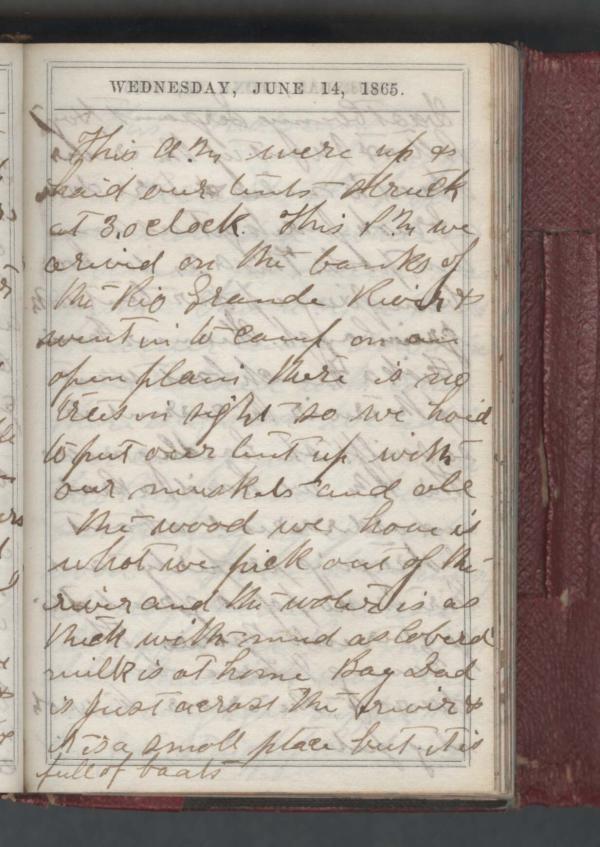 WEDNESDAY, JUNE 14, 1865.
This A.M were up &
haid our tents struck
at 3,oclock. This P.M we
arivid on the banks of
the Rio Grande River &
went in to camp on an
open plain there is no
trees in sight so we haid
to put our tent up with
our muskets and all
the wood we have is
what we pick out of the
river and the water is as
thick with mud as loberd
milk is at home Bag Dad
is just across the river &
it is a small place but it is
full of boats